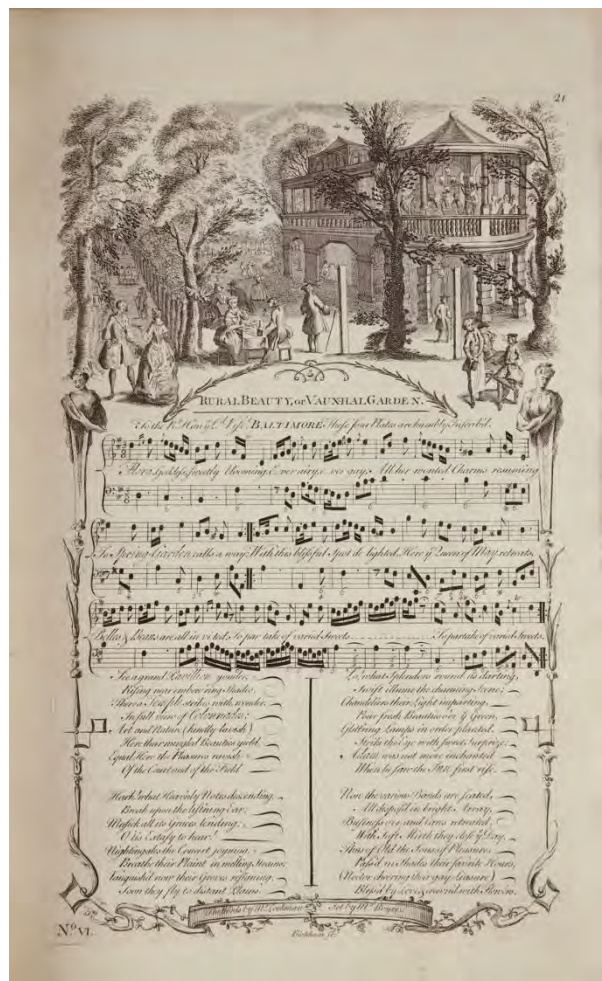 21
RURAL BEAUTY, or VAUXHAL GARDEN.
To the Rt. Hon. ye Ld. BALTIMORE These four Plates are humbly Inscrib'd.
Flora, Goddess sweetly blooming, Ever airy, ever gay; All her wonted Charms resuming
To Spring Garden calls a way. With this blissful Spot delighted, Here ye Queen of May retreats,
Belles & Beaus are all in vited, To par take of varied Sweets To partake of varied Sweets.
See a grand Pavilion yonder,
Rising near embow'ring Shades;
There a Temple strikes with wonder,
In full view of Colonnades:
Art and Nature, (kindly lavish)
Here their mingled Beauties yield;
Equal Here the Pleasures ravish
Of the Court and of the Field
Hark! what Heavenly Notes descending,
Break upon the list'ning Ear;
Musick all its Graces lending;
O 'tis Extasy to hear!
Nightingales the Concert joyning,
Breathe their Plaint in melting Strains;
Vanquish'd now their Groves resigning,
Soon they fly to distant Plains.
Lo, what Splendors round us darting,
Swift illume the charming Scene;
Chandeliers their Light imparting,
Pour fresh Beauties o'er ye Green,
Glitt'ring Lamps in order planted.
Strike the Eye with sweet Surprize;
Adam was not more enchanted
When he saw the Sun first rise.
Now the various Bands are seated,
All dispos'd in bright Array,
Business o'er, and Cares retreated,
With Soft Mirth they close ye Day.
Thus of Old, the Sons of Pleasure
Pass'd in Shades their favrite Hours,
(Nectar chearing their gay Leisure)
Bless'd by Love & crown'd with Flowers.
The Words by Mr. Lockman. Set by Mr. Boyce.
No. VI.
Bickham sc.